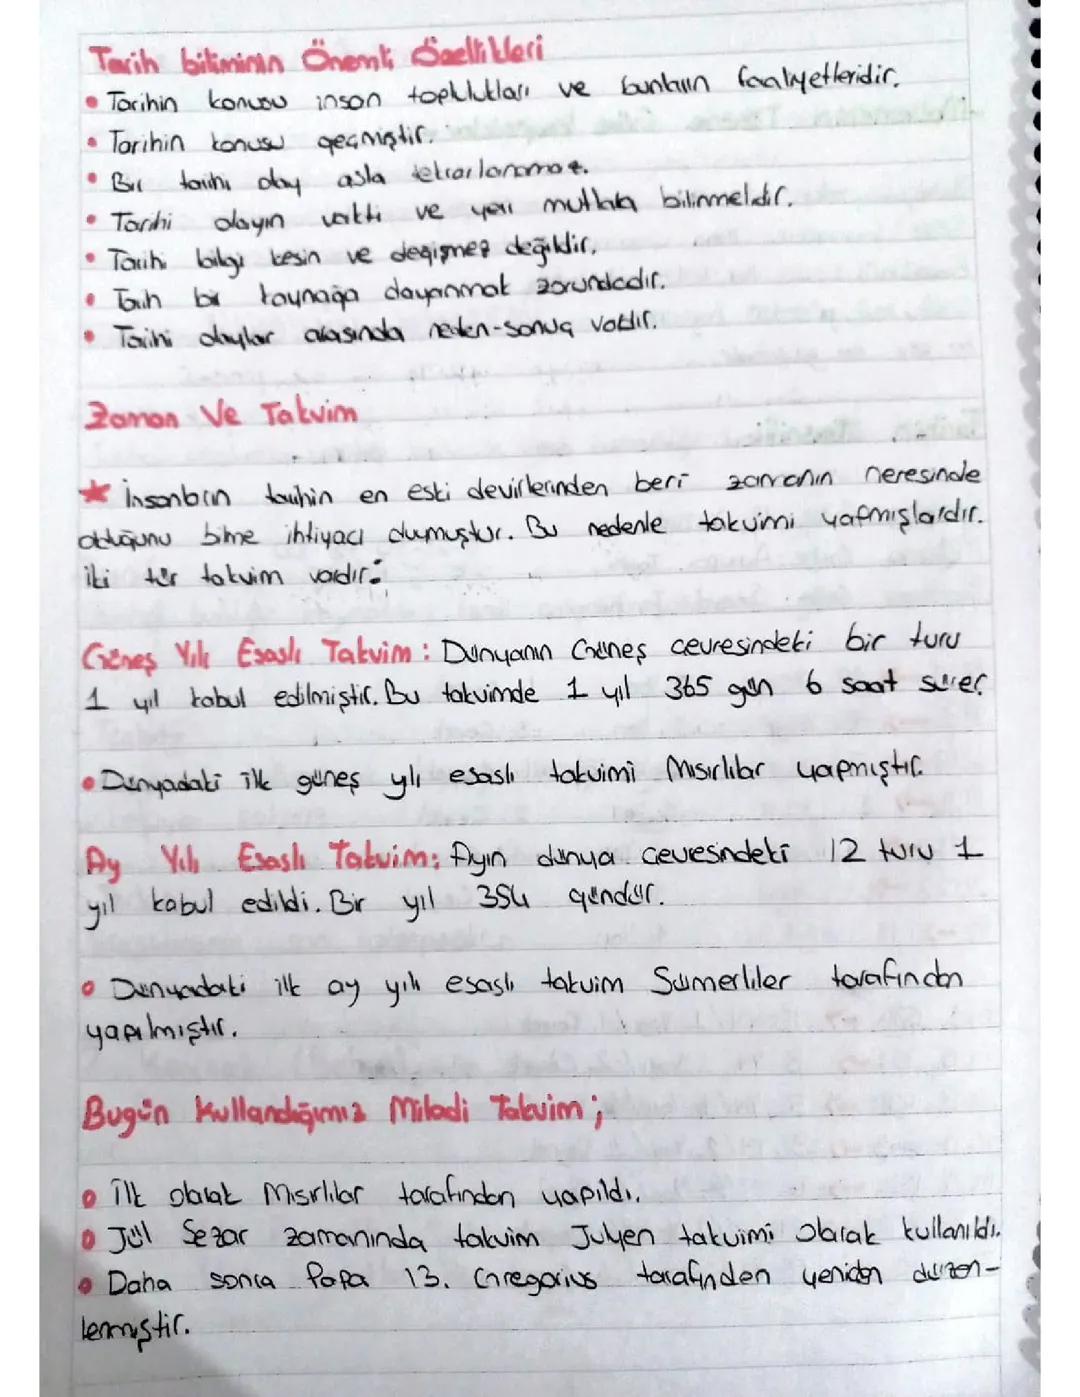 Tarih biliminin Önemli Özellikleri
• Tarihin konusu insan toplulukları ve bunların faaliyetleridir.
• Tarihin konusu geçmiştir.
• Bir tarihi olay asla tekrarlanamaz.
• Tarihi olayın vakti ve yeri mutlaka bilinmelidir.
• Tarihi bilgi kesin ve değişmez değildir.
• Tarih bir kaynağa dayanmak zorundadır.
• Tarihi olaylar arasında neden-sonuç vardır.
Zaman Ve Takvim
★ İnsanların tarihin en eski devirlerinden beri zamanın neresinde
olduğunu bilme ihtiyacı duymuştur. Bu nedenle takvimi yapmışlardır.
iki tür takvim vardır:
Güneş Yılı Esaslı Takvim: Dünyanın Güneş çevresindeki bir turu
1 yıl kabul edilmiştir. Bu takvimde 1 yıl 365 gün 6 saat sürer.
• Dünyadaki ilk güneş yılı esaslı takvimi Mısırlılar yapmıştır.
Ay Yılı Esaslı Takvim: Ayın dünya çevresindeki 12 turu 1
yıl kabul edildi. Bir yıl 354 gündür.
• Dünyadaki ilk ay yılı esaslı takvim Sümerliler tarafından
yapılmıştır.
Bugün Kullandığımız Miladi Takvim;
• İlk olarak Mısırlılar tarafından yapıldı.
• Jül Sezar zamanında takvim Julyen takvimi olarak kullanıldı.
• Daha sonra Papa 13. Gregorius tarafından yeniden düzen-
lenmiştir.